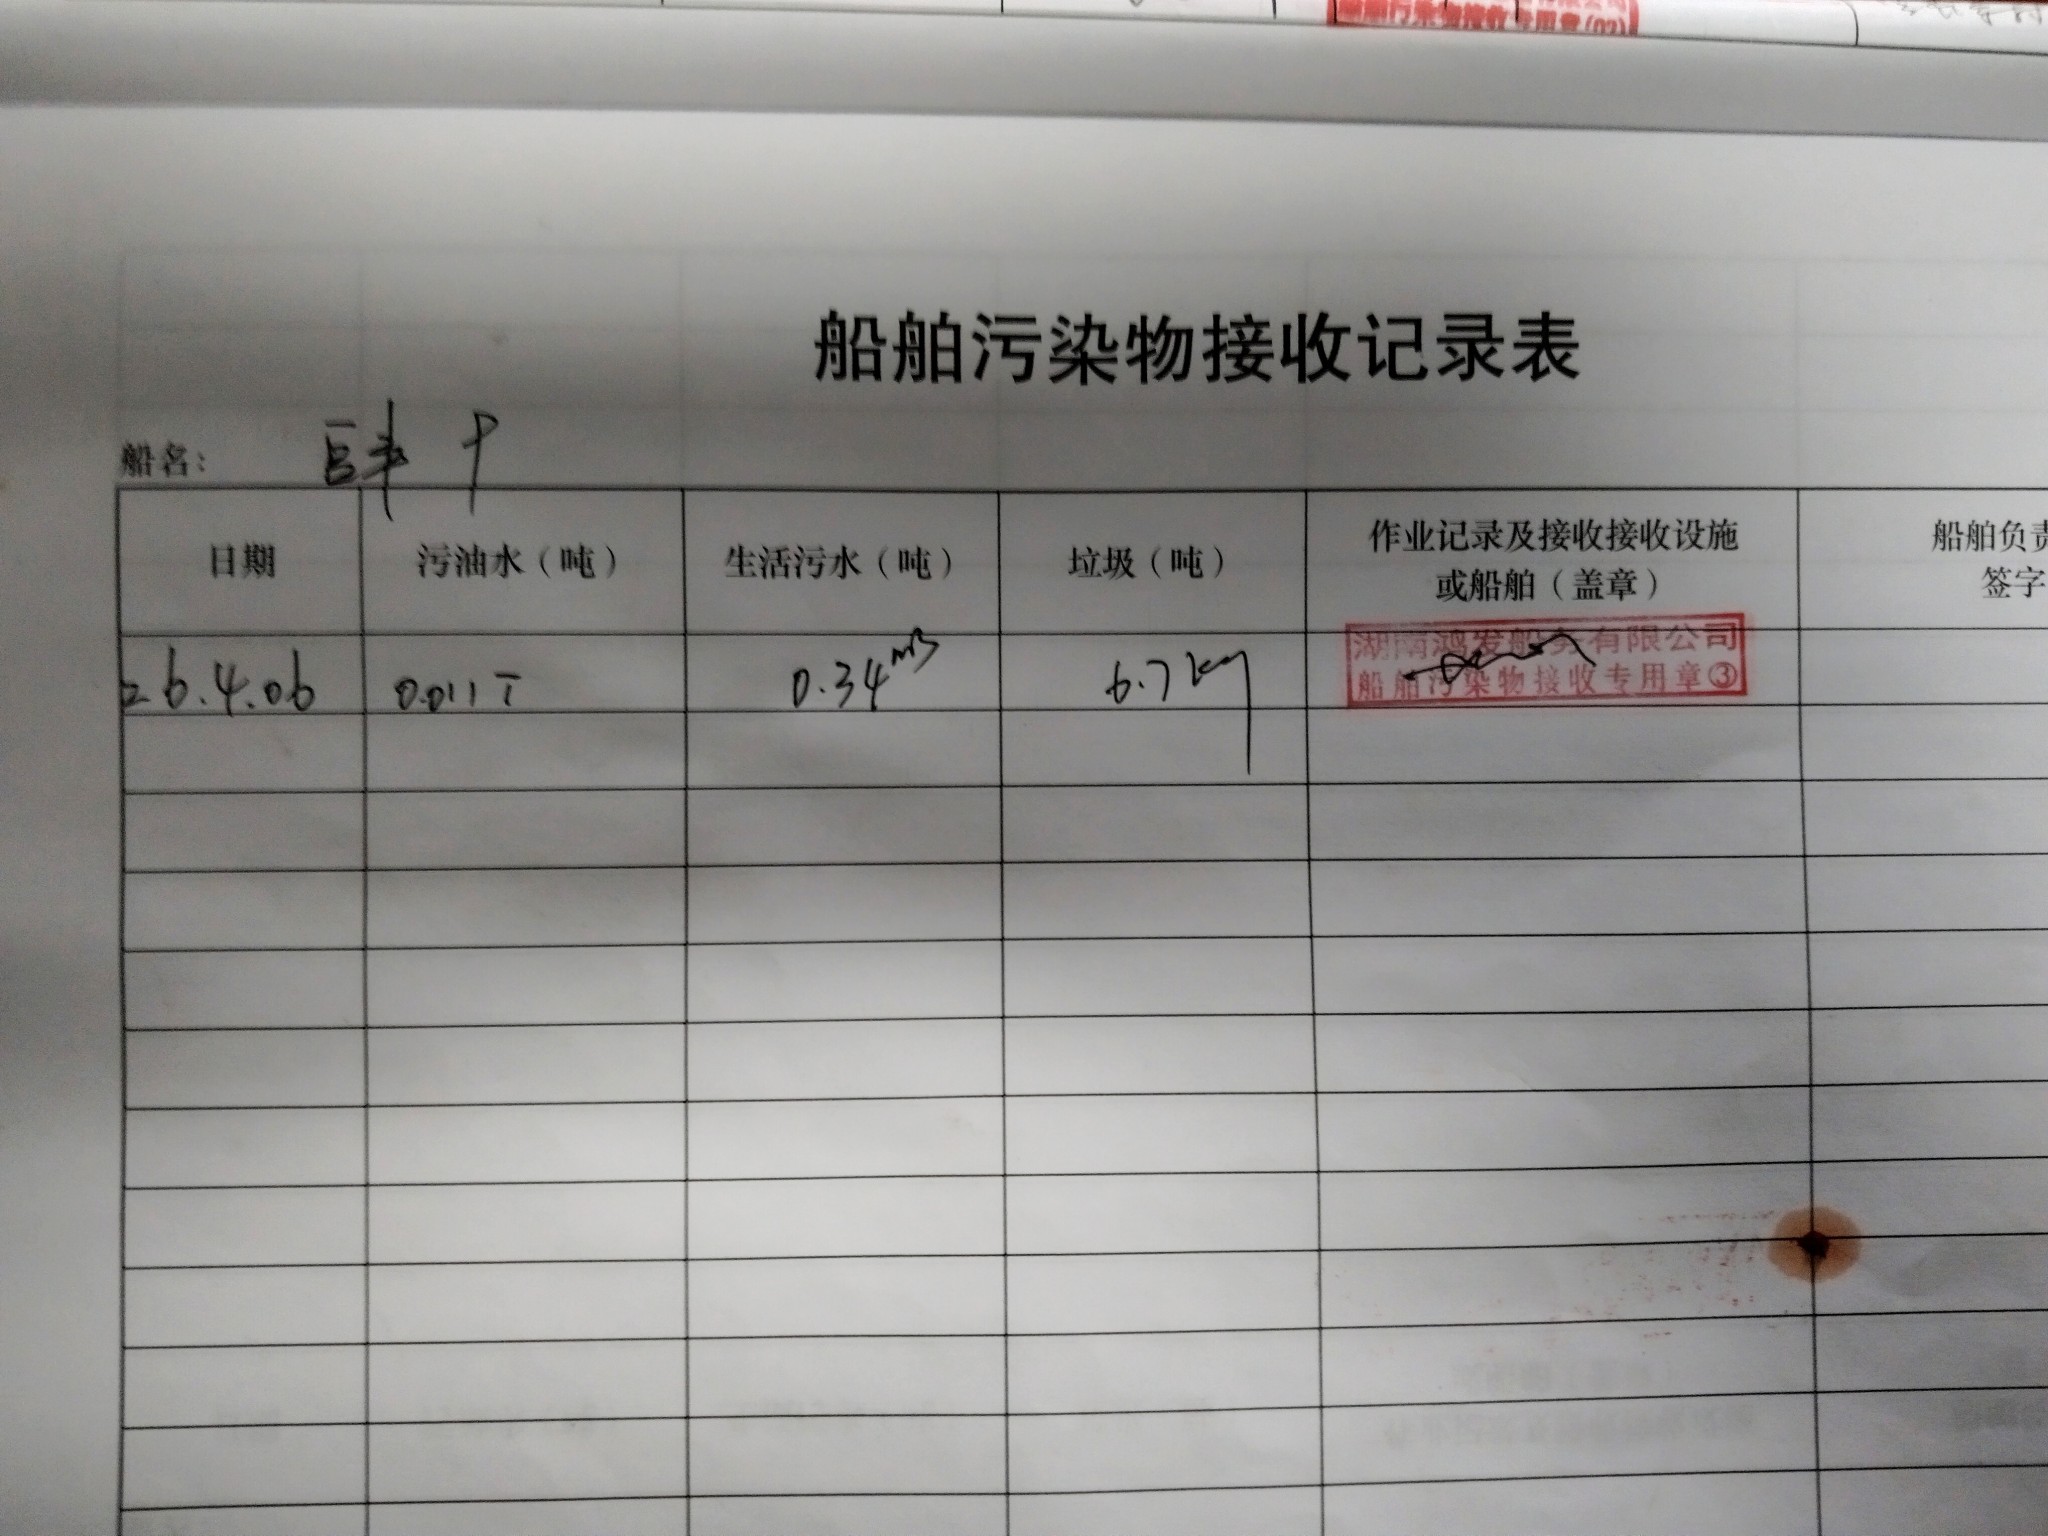 船舶污染物接收专用章(03)
船舶污染物接收记录表
船名:
日期 污油水（吨） 生活污水（吨） 垃圾（吨） 作业记录及接收接收设施
或船舶（盖章） 船舶负责
签字
26.4.06 0.011T 0.34m3 6.7kg 湖南鸿发船务有限公司
船舶污染物接收专用章③